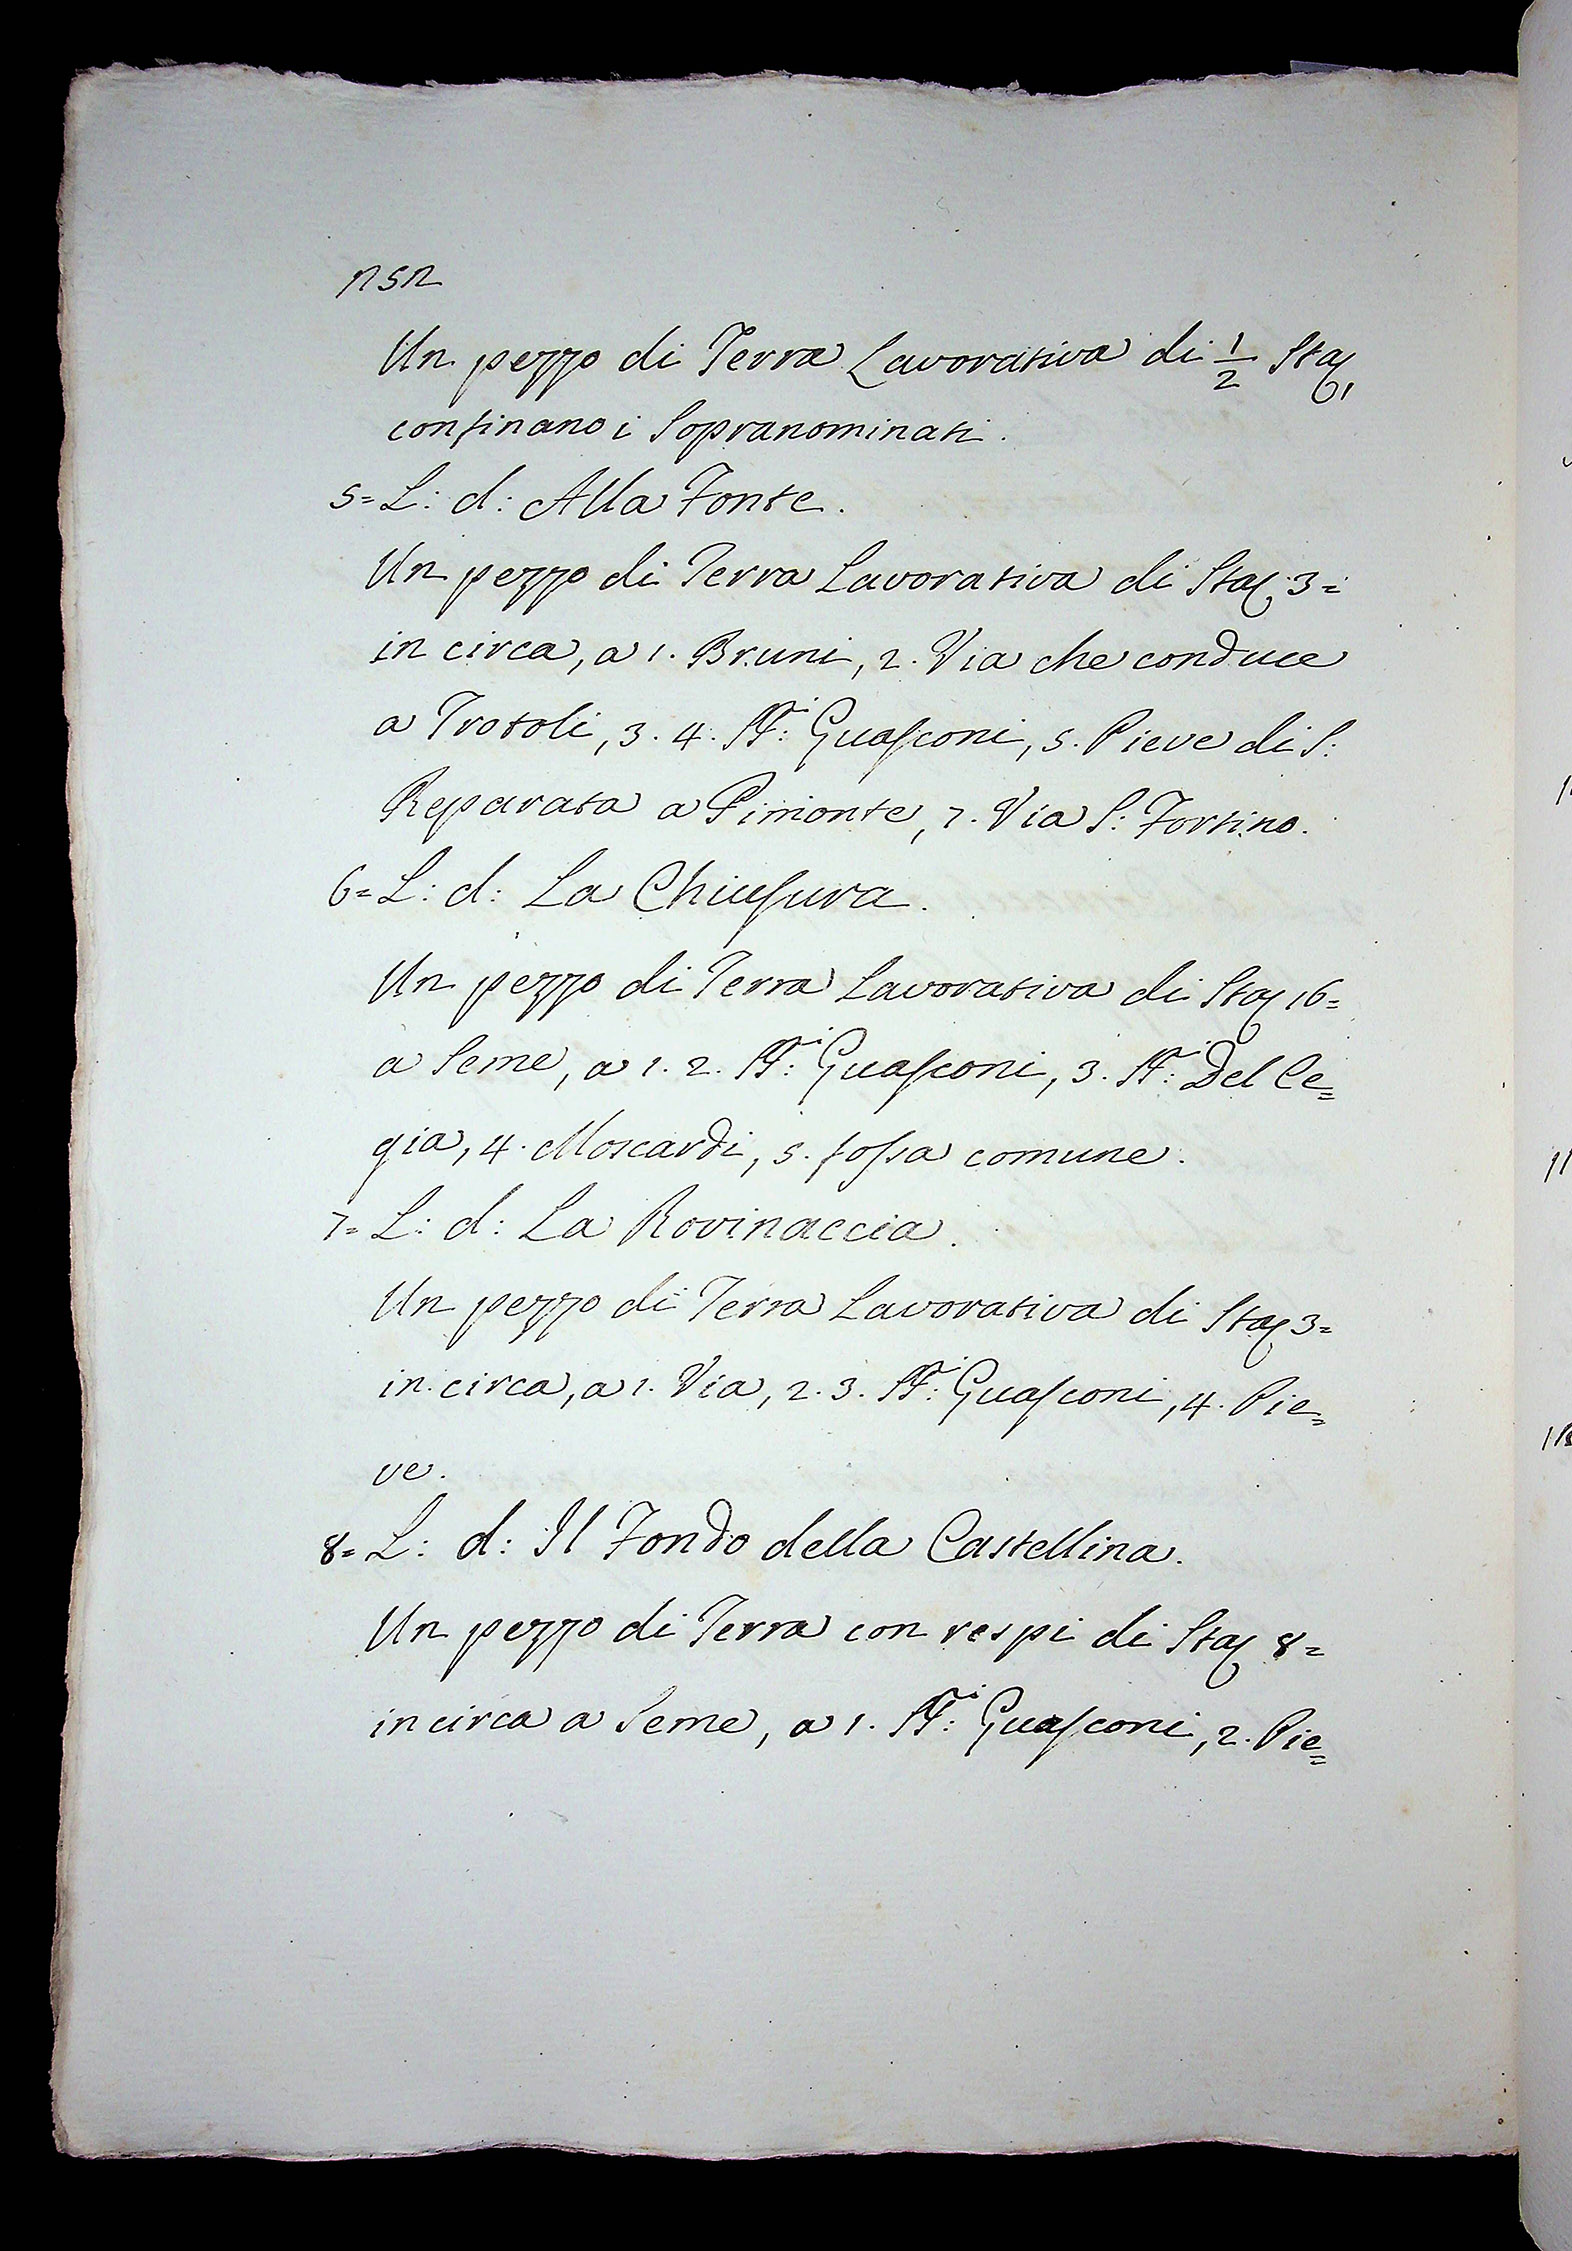 252
Un pezzo di Terra Lavorativa di 1/2 Sta,
confinano i Sopranominati.
5= L: d: Alla Fonte.
Un pezzo di Terra Lavorativa di Sta 3=
in circa, a 1. Bruni, 2. Via che conduce
a Trotoli, 3. 4. SS:ri Guasconi, 5. Pieve di S:
Reparata a Pimonte, 7. Via S: Fortino.
6= L: d: La Chiusura.
Un pezzo di Terra Lavorativa di Sta 16=
a Seme, a 1. 2. SS:ri Guasconi, 3. SS:ri Del Ce=
gia, 4. Moscardi, 5. fossa comune.
7= L: d: La Rovinaccia.
Un pezzo di Terra Lavorativa di Sta 3=
in circa, a 1. Via, 2. 3. SS:ri Guasconi, 4. Pie=
ve.
8= L: d: Il Fondo della Castellina.
Un pezzo di Terra con respi di Sta 8=
in circa a Seme, a 1. SS:ri Guasconi, 2. Pie=